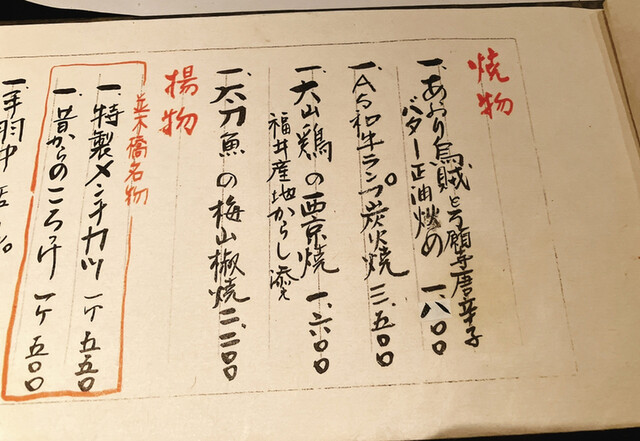 焼物
一、あおり烏賊と万願寺唐辛子
バター正油炒め 一、八〇〇
一、A5和牛ランプ炭火焼 三、五〇〇
一、大山鶏の西京焼 一、六〇〇
福井産地からし添え
一、太刀魚の梅山椒焼 二、二〇〇
揚物
並木橋名物
一、特製メンチカツ 一ケ 五五〇
一、昔からのころっけ 一ケ 五〇〇
一、手羽中